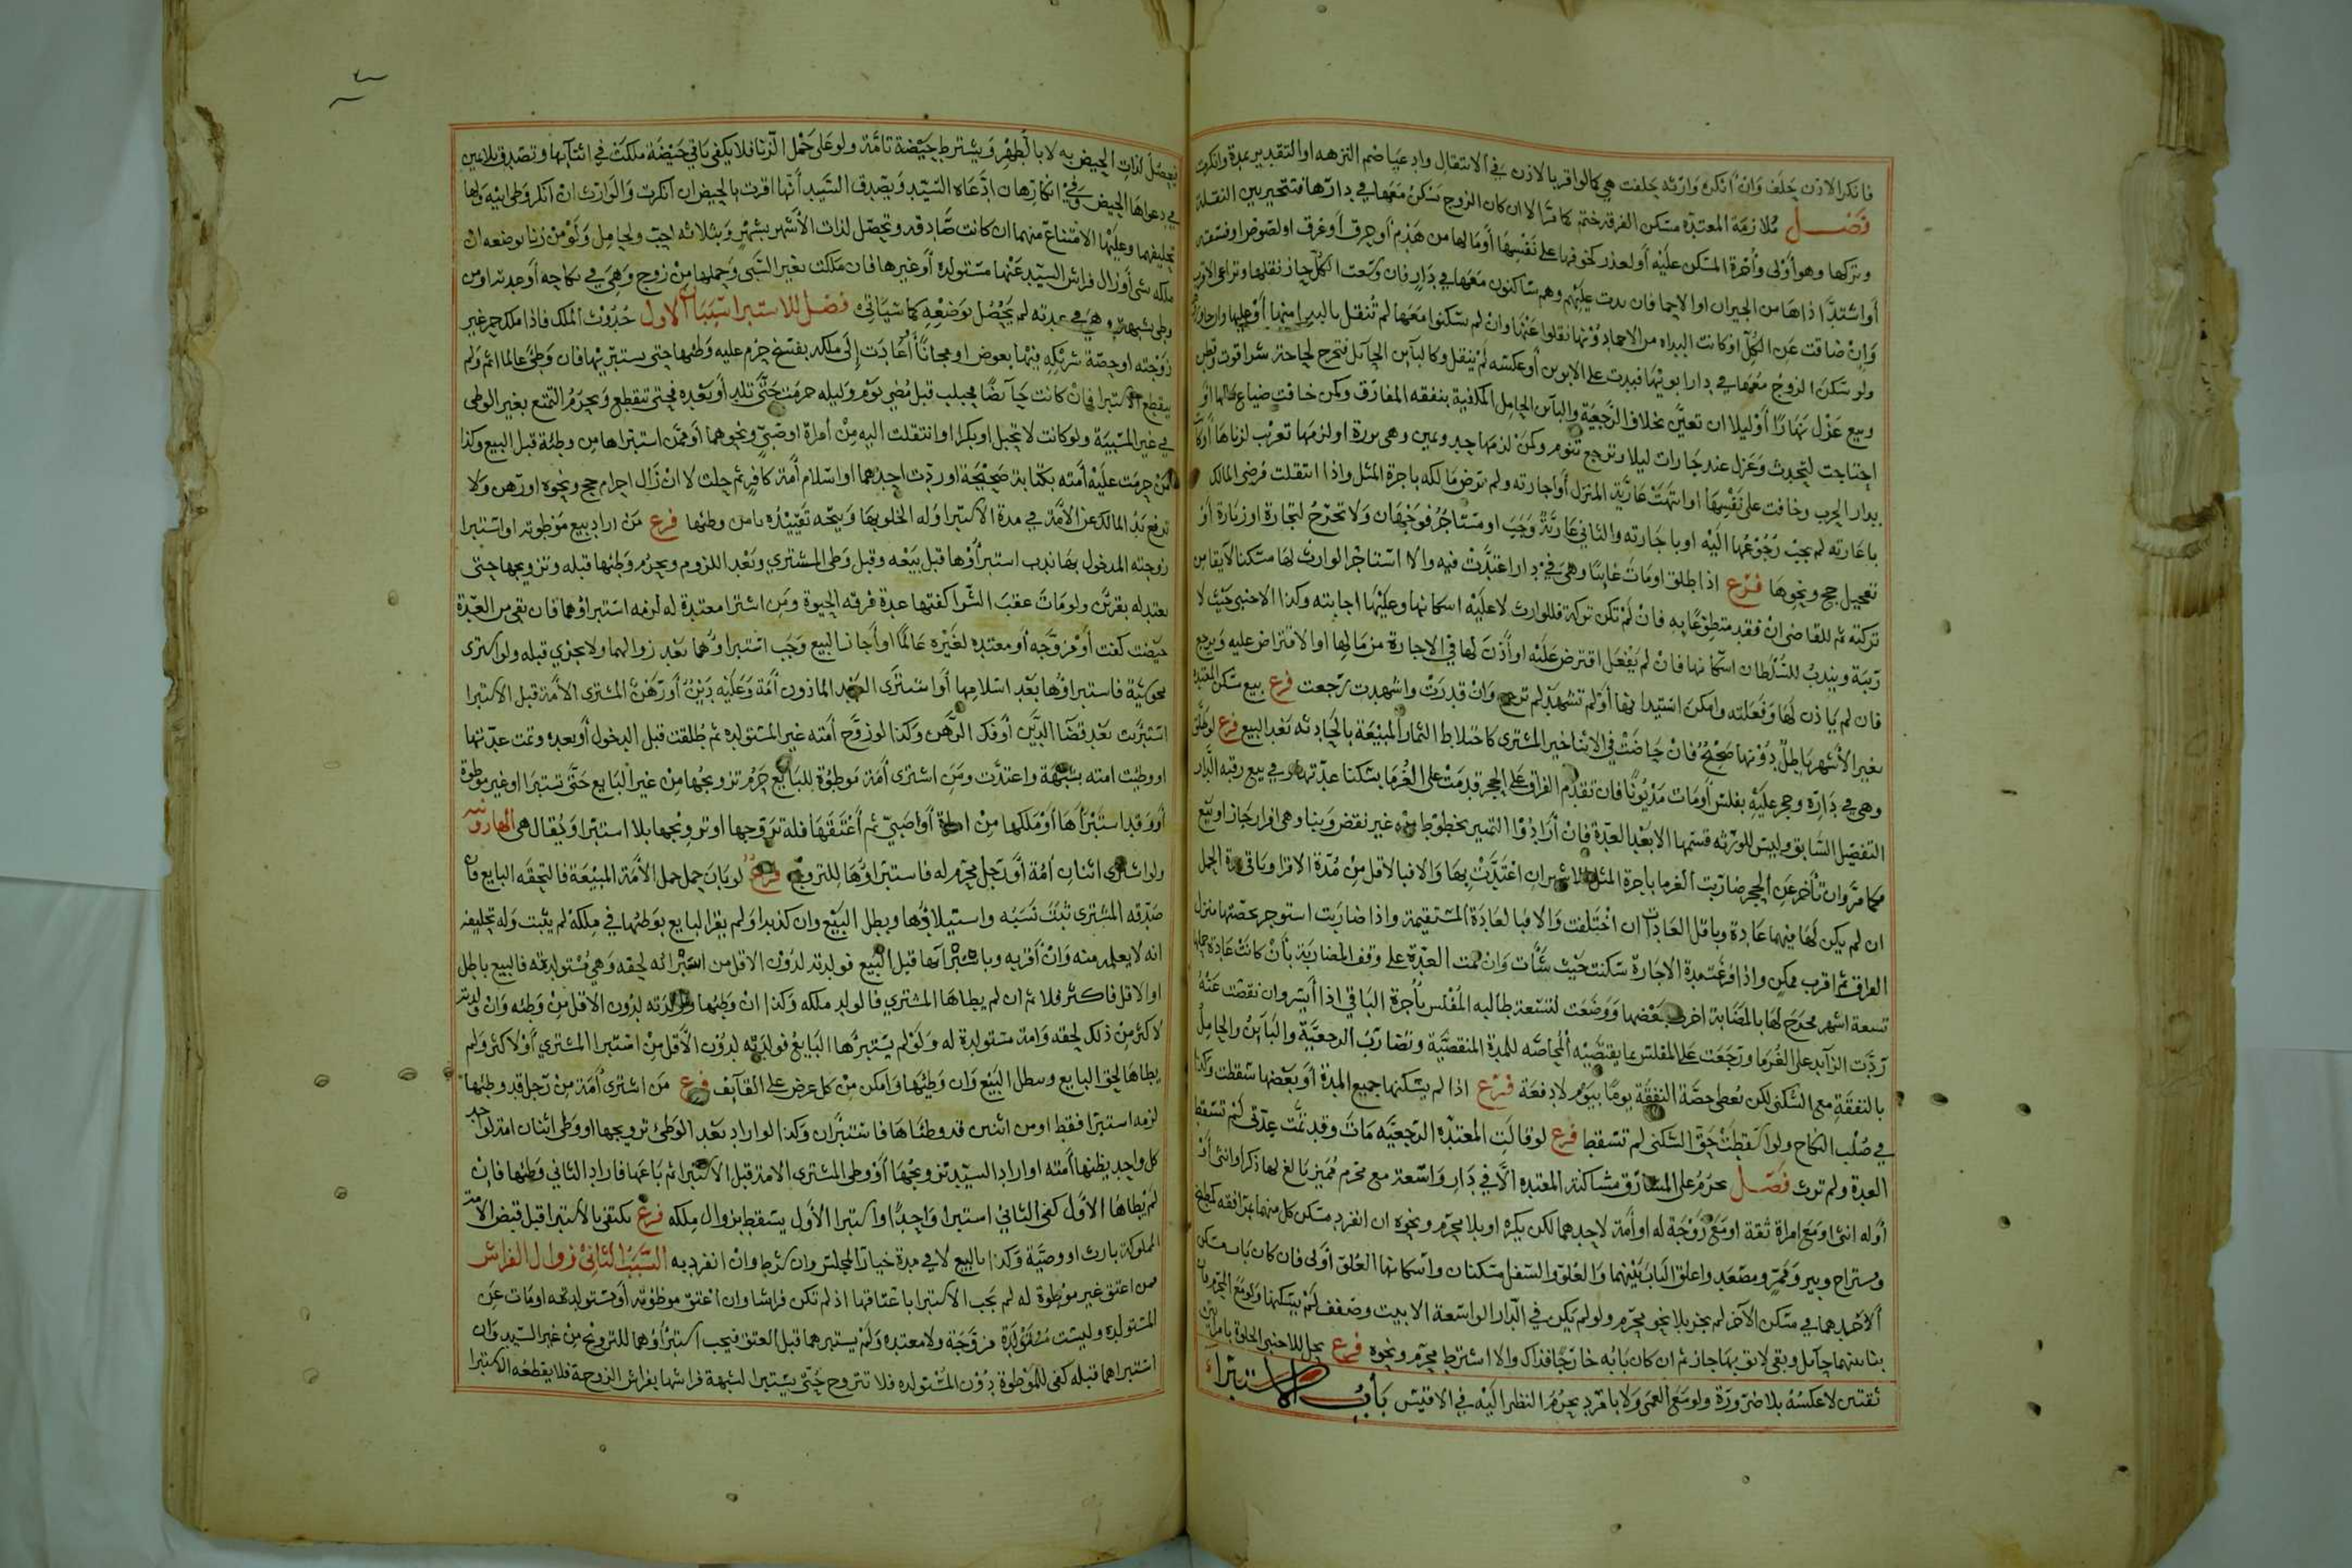 فانكر الاذن حلف وان انكره وارثه حلفت هي كما لو اقر بالاذن في الانتقال وادعيا ضم النزهه او التقدير بمدة وانكرت
فصل ملازمة المعتدة مسكن الفرقة حتم كما مر الا ان كان الزوج سكن معها في دارها فتتخير بين النقلة
وتركها وهو اولى واجرة المسكن عليه او لعذر كخوفها على نفسها او مالها من هدم او حرق او غرق او لصوص او فسقه
او اشتد اذاها من الجيران او الاحما فان بدت عليهم وهم ساكنون معها في دار فان وسعت الكل جاز نقلها
وان ضاقت عن الكل او كانت البداه من الاحما دونها نقلوا عنها وان لم يسكنوا معها لم تنقل بالبدا منها او عليها
ولو سكن الزوج معها في دار ابويها فبدت على الابوين او عكسه لم ينقل وكالباين الحايل فتخرج لحاجة شرا قوت وقطن
وبيع غزل نهارا او ليلا ان تعين بخلاف الرجعية والباين الحامل المكفية بنفقه المفارق وكمن خافت ضياع مالها او
احتاجت لتحدث وغزل عند جارات ليلا وترجع تنوم وكمن لزمها حد ويمين وهي برزة او لزمها تغريب لزناها او كانت
بدار الحرب وخافت على نفسها او انتهت عارية المنزل او اجارته ولم يرض مالكه باجرة المثل واذا انتقلت فرضي المالك
باعارته لم يجب رجوعها اليه او باجارته والثاني عارية وجب او مستاجر فوجهان ولا تخرج لتجارة او زيارة او
تعجيل حج ونحوها فرع اذا طلق او مات غايبا وهي في دار اعتدت فيه والا استاجر الوارث لها مسكنا لايقا من
تركته ثم للقاضي ان فقد متطوعا به فان لم تكن تركة فللوارث لا عليه اسكانها وعليها اجابته وكذا الاجنبي حيث لا
ريبة ويندب للسلطان اسكانها فان لم يفعل اقترض عليه او اذن لها في الاجارة من مالها او الاقتراض عليه ويرجع
فان لم ياذن لها وفعلته وامكن استيذانها او لم تشهد لم ترجع وان قدرت واشهدت رجعت فرع بيع مسكن المعتدة
بغير الاشهر باطل دونها صحيح فان حاضت في الاثنا خير المشتري كاختلاط الثمار المبيعة بالحادثه بعد البيع فرع لو طلق
وهي في داره وحجر عليه بفلس او مات مديونا فان تقدم الفراق على الحجر قدمت على الغرما بسكنا عدتها وفي بيع رقبه الدار
التفصيل السابق وليس للورثه قسمها الا بعد العدة فان ارادوا التمييز بخطوط من غير نقض وبنا وهي افراز جاز او بيع
فكما مر وان تاخر عن الحجر ضاربت الغرما باجرة المثل للاشهر ان اعتدت بها والا فبالاقل من مدة الاقرا وباقي مدة الحمل
ان لم يكن لها فيهما عادة وباقل العادات ان اختلفت والا فبالعادة المستقيمة واذا ضاربت استوجر بحصتها منزل
الفراق ثم اقرب ممكن واذا فرغت مدة الاجارة سكنت حيث شات وان تمت العدة على وفق المضاربة بان كانت عادة حملها
تسعة اشهر مخرج لها بالمضاربة اخرى بعضها ووضعت لتسعة طالبه المفلس باجرة الباقي اذا ايسر وان نقصت عنه
ردت الزايد على الغرما ورجعت على المفلس بما يقتضيه المحاصه للمدة المنقضية وتضارب الرجعية والباين والحامل
بالنفقة مع السكنى لكن تعطى حصة النفقة يوما بيوم لا دفعة فرع اذا لم يسكنها جميع المدة او بعضها سقطت وكذا
في صلب النكاح ولو اسقطت حق السكنى لم تسقط فرع لو قالت المعتدة الرجعيه مات وقد تمت عدتي لم تسقط
العدة ولم ترث فصل يحرم على المفارق مساكنة المعتدة الا في دار واسعة مع محرم مميز بالغ لها ذكرا او انثى او
او له انثى او مع امراة ثقة او مع زوجة له او امة لاحدهما لكن يكره او بلا محرم ونحوه ان انفرد مسكن كل منهما بمرافقه كمطبخ
ومستراح وبير وممر ومصعد واغلق الباب بينهما والعلو والسفل مسكنان واسكانها العلو اولى فان كان باب مسكن
احدهما في مسكن الاخر لم يجز بلا نحو محرم ولو لم يكن في الدار الواسعة الا بيت وصفف لم يسكنها ولو مع المحرم
بينهما حايل وبقي لايق بها جاز ثم ان كان بابه خارجا فذاك والا اشترط محرم ونحوه فرع يحل للاجنبي الخلوة بامراتين
ثقتين لا عكسه بلا ضرورة ولو مع العمى ولا بامرد يحرم النظر اليه في الاقيس باب الاستبراء
يحصل لذات الحيض به لا بالطهر ويشترط حيضة تامة ولو على حمل الزنا فلا يكفي باقي حيضة ملكت في اثنائها وتصدق بلا يمين
في دعواها الحيض وفي انكارها ان ادعاه السيد ويصدق السيد انها اقرت بالحيض ان انكرت والوارث ان انكر وطي ابيه ولها
تحليفهما وعليها الامتناع منهما ان كانت صادقه وتحصل لذات الاشهر بشهر وبثلاثه احب ولحامل ولو من زنا بوضعه ان
ملكه بسبي او زال فراش السيد عنها مستولدة او غيرها فان ملكت بغير السبي وحملها من زوج وهي في نكاحه او عدته او من
وطي بشبهة وهي في عدته لم يحصل بوضعه كما سياتي فصل للاستبرا سببان الاول حدوث الملك فاذا ملك حر غير
زوجته او حصة شريكه فيها بعوض او مجانا او عادت الى ملكه بفسخ حرم عليه وطئها حتى يستبريها فان وطئ عالما اثم ولم
ينقطع الاستبرا فان كانت حايضا فحبلت قبل مضي يوم وليله حرمت حتى تلد او بعده فحتى تنقطع ويحرم التمتع بغير الوطي
في غير المسبية ولو كانت لا تحبل او بكرا او انتقلت اليه من امراة او صبي ونحوهما او ممن استبراها من وطئه قبل البيع وكذا
من حرمت عليه امته بكتابة صحيحة او ردت احدهما او اسلام امة كافر ثم حلت لا ان زال احرام حج ونحوه او رهن ولا
ترفع يد المالك عن الامة في مدة الاستبرا وله الخلو بها ويتجه تقييده بامن وطئها فرع من اراد بيع موطوته او استبرا
زوجته المدخول بها ندب استبراؤها قبل بيعه وقبل وطي المشتري وبعد اللزوم ويحرم وطئها قبله وتزويجها حتى
يعتد له بقرين ولو مات عقب الشرا كفتها عدة فرقه الحيوة ومن اشترا معتدة له لزمه استبراؤها فان بقي من العدة
حيضت كفت او مزوجه او معتده لغيره عالما او اجاز البيع وجب استبراوها بعد زوالهما ولا يجزي قبله ولو اشترى
مجوسية فاستبراوها بعد اسلامها او اشترى العبد الماذون امة وعليه دين او رهن المشتري الامة قبل الاستبرا
استبرئت بعد قضا الدين او فك الرهن وكذا لو زوج امته غير المستولده ثم طلقت قبل الدخول او بعده وتمت عدتها
او وطئت امته بشبهة واعتدت ومن اشترى امة موطوة للبايع حرم تزويجها من غير البايع حتى تستبرا او غير موطوة
او وقد استبراها او ملكها من امراة او صبي ثم اعتقها فله تزوجها او تزويجها بلا استبرا ويقال هي الهارونيه
ولو اشترى اثنان امة او رجل محرم له فاستبراوها للتزوج فرع لو بان حمل الامة المبيعة فالتحقه البايع فان
صدقه المشتري ثبت نسبه واستيلادها وبطل البيع وان كذبه ولم يقر البايع بوطئها في ملكه لم يثبت وله تحليفه
انه لا يعلمه منه وان اقر به وباستبرائها قبل البيع فولدته لدون الاقل من استبرائه لحقه وهي مستولدته فالبيع باطل
او الاقل فاكثر فلا ثم ان لم يطاها المشتري فالولد ملكه وكذا ان وطئها وولدته لدون الاقل من وطئه وان ولدته
لاكثر من ذلك لحقه وامة مستولدة له ولو لم يستبرها البايع فولدته لدون الاقل من استبرا المشتري او لاكثر ولم
يطاها لحق البايع وبطل البيع وان وطئها وامكن من كل عرض على القايف فرع من اشترى امة من رجل قد وطئها
لزمه استبرا فقط او من اثنين قد وطئاها فاستبران وكذا لو اراد بعد الوطئ تزويجها او وطي اثنان امة رجل
كل واحد يظنها امته او اراد السيد تزويجها او وطي المشتري الامة قبل الاستبرا ثم باعها فاراد الثاني وطئها فان
لم يطاها الاول كفى الثاني استبرا واحد واستبرا الاول يسقط بزوال ملكه فرع يكتفي بالاستبرا قبل قبض الامة
المملوكة بارث او وصية وكذا بالبيع لا في مدة خيار المجلس وان شرط وان انفرد به السبب الثاني زوال الفراش
فمن اعتق غير موطوة له لم يجب الاستبرا باعتاقها اذ لم تكن فراشا وان اعتق موطوته او مستولدته او مات عن
المستولدة وليست مزوجة ولا معتده ولم يستبرهما قبل العتق فيجب استبراؤهما للتزويج من غير السيد وان
استبراهما قبله كفى للموطوة دون المستولده فلا تتزوج حتى تستبرا لشبهة فراشها بفراش الزوجة فلا يقطعه الاستبرا